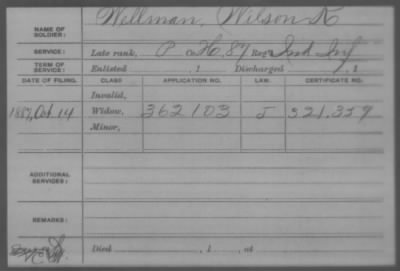 NAME OF SOLDIER: Wellman, Wilson K
SERVICE: Late rank, P Co H, 87 Reg't Ind Inf
TERM OF SERVICE: Enlisted , 1 Discharged , 1
DATE OF FILING. CLASS APPLICATION NO. LAW. CERTIFICATE NO.
Invalid,
1887, Oct 14 Widow, 362103 J 321.359
Minor,
ADDITIONAL SERVICES:
REMARKS:
Died , 1 , at